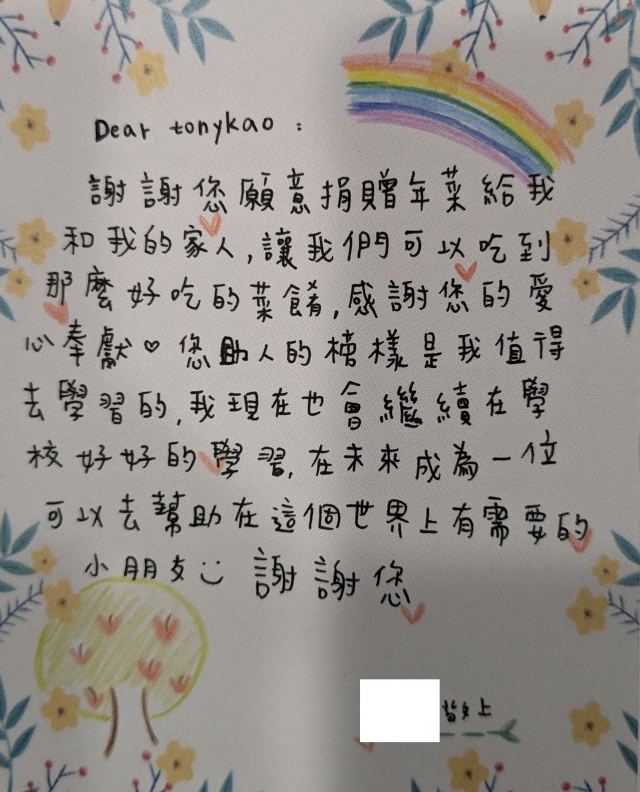 Dear tonykao :
謝謝您願意捐贈年菜給我
和我的家人,讓我們可以吃到
那麼好吃的菜餚,感謝您的愛
心奉獻♡您助人的榜樣是我值得
去學習的,我現在也會繼續在學
校好好的學習,在未來成為一位
可以去幫助在這個世界上有需要的
小朋友 謝謝您
敬上